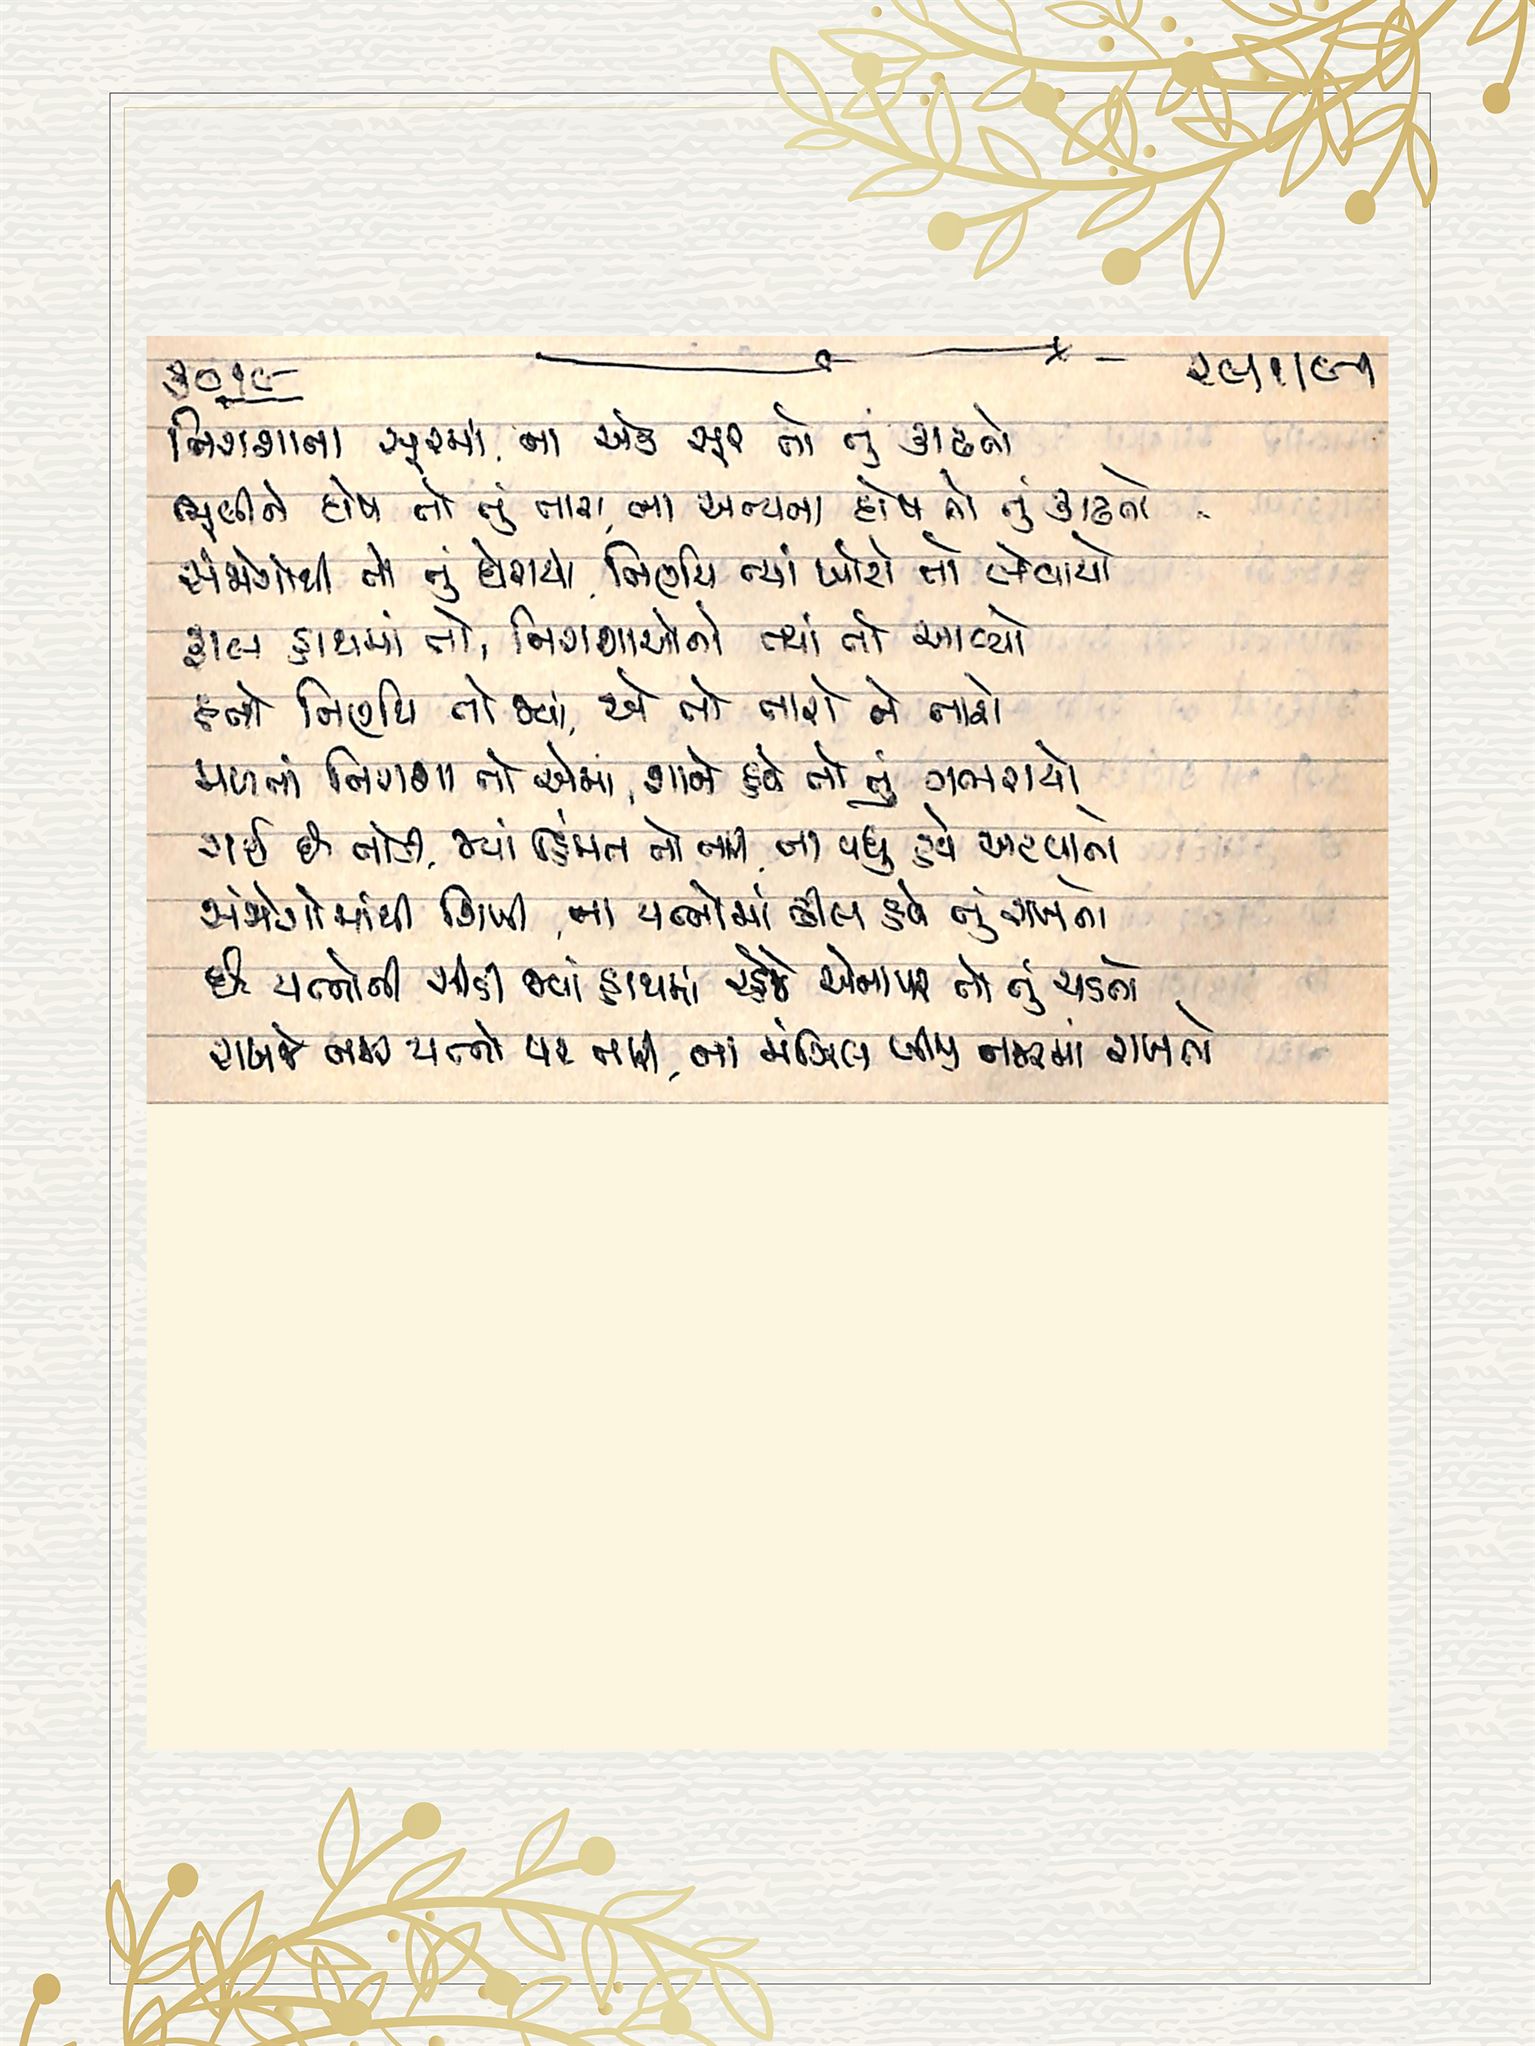 ૩૦૧૯ ૨૯।૧।૯૧
નિરાશાના સૂરમાં, ના એક સૂર તો તું કાઢતો
ભૂલીને દોષ તો તું તારા, ના અન્યના દોષ તો તું કાઢતો
સંજોગોથી તો તું ઘેરાયો, નિર્ણય ત્યાં ખોટો તો લેવાયો
ફાલ હાથમાં તો, નિરાશાઓનો ત્યાં તો આવ્યો
હતો નિર્ણય તો જ્યાં, એ તો તારો ને તારો
મળતાં નિરાશા તો એમાં, શાને હવે તો તું ગભરાયો
ગઈ છે તોડી, જ્યાં હિંમત તો તારી, ના વધુ હવે અટવાતો
સંજોગોમાંથી શિખી, ના યત્નોમાં ઢીલ હવે તું રાખતો
છે યત્નોની સીડી જ્યાં હાથમાં રહેજે એના પર તો તું ચડતો
રાખજે નજર યત્નો પર તારી, ના મંઝિલ બીજી નજરમાં રાખતો